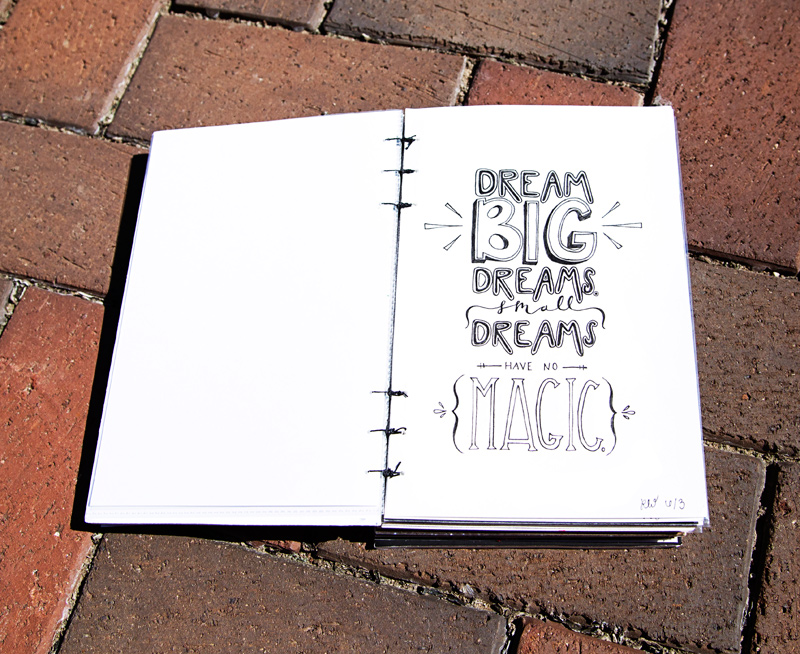 DREAM
BIG
DREAMS.
small
DREAMS
HAVE NO
MAGIC.